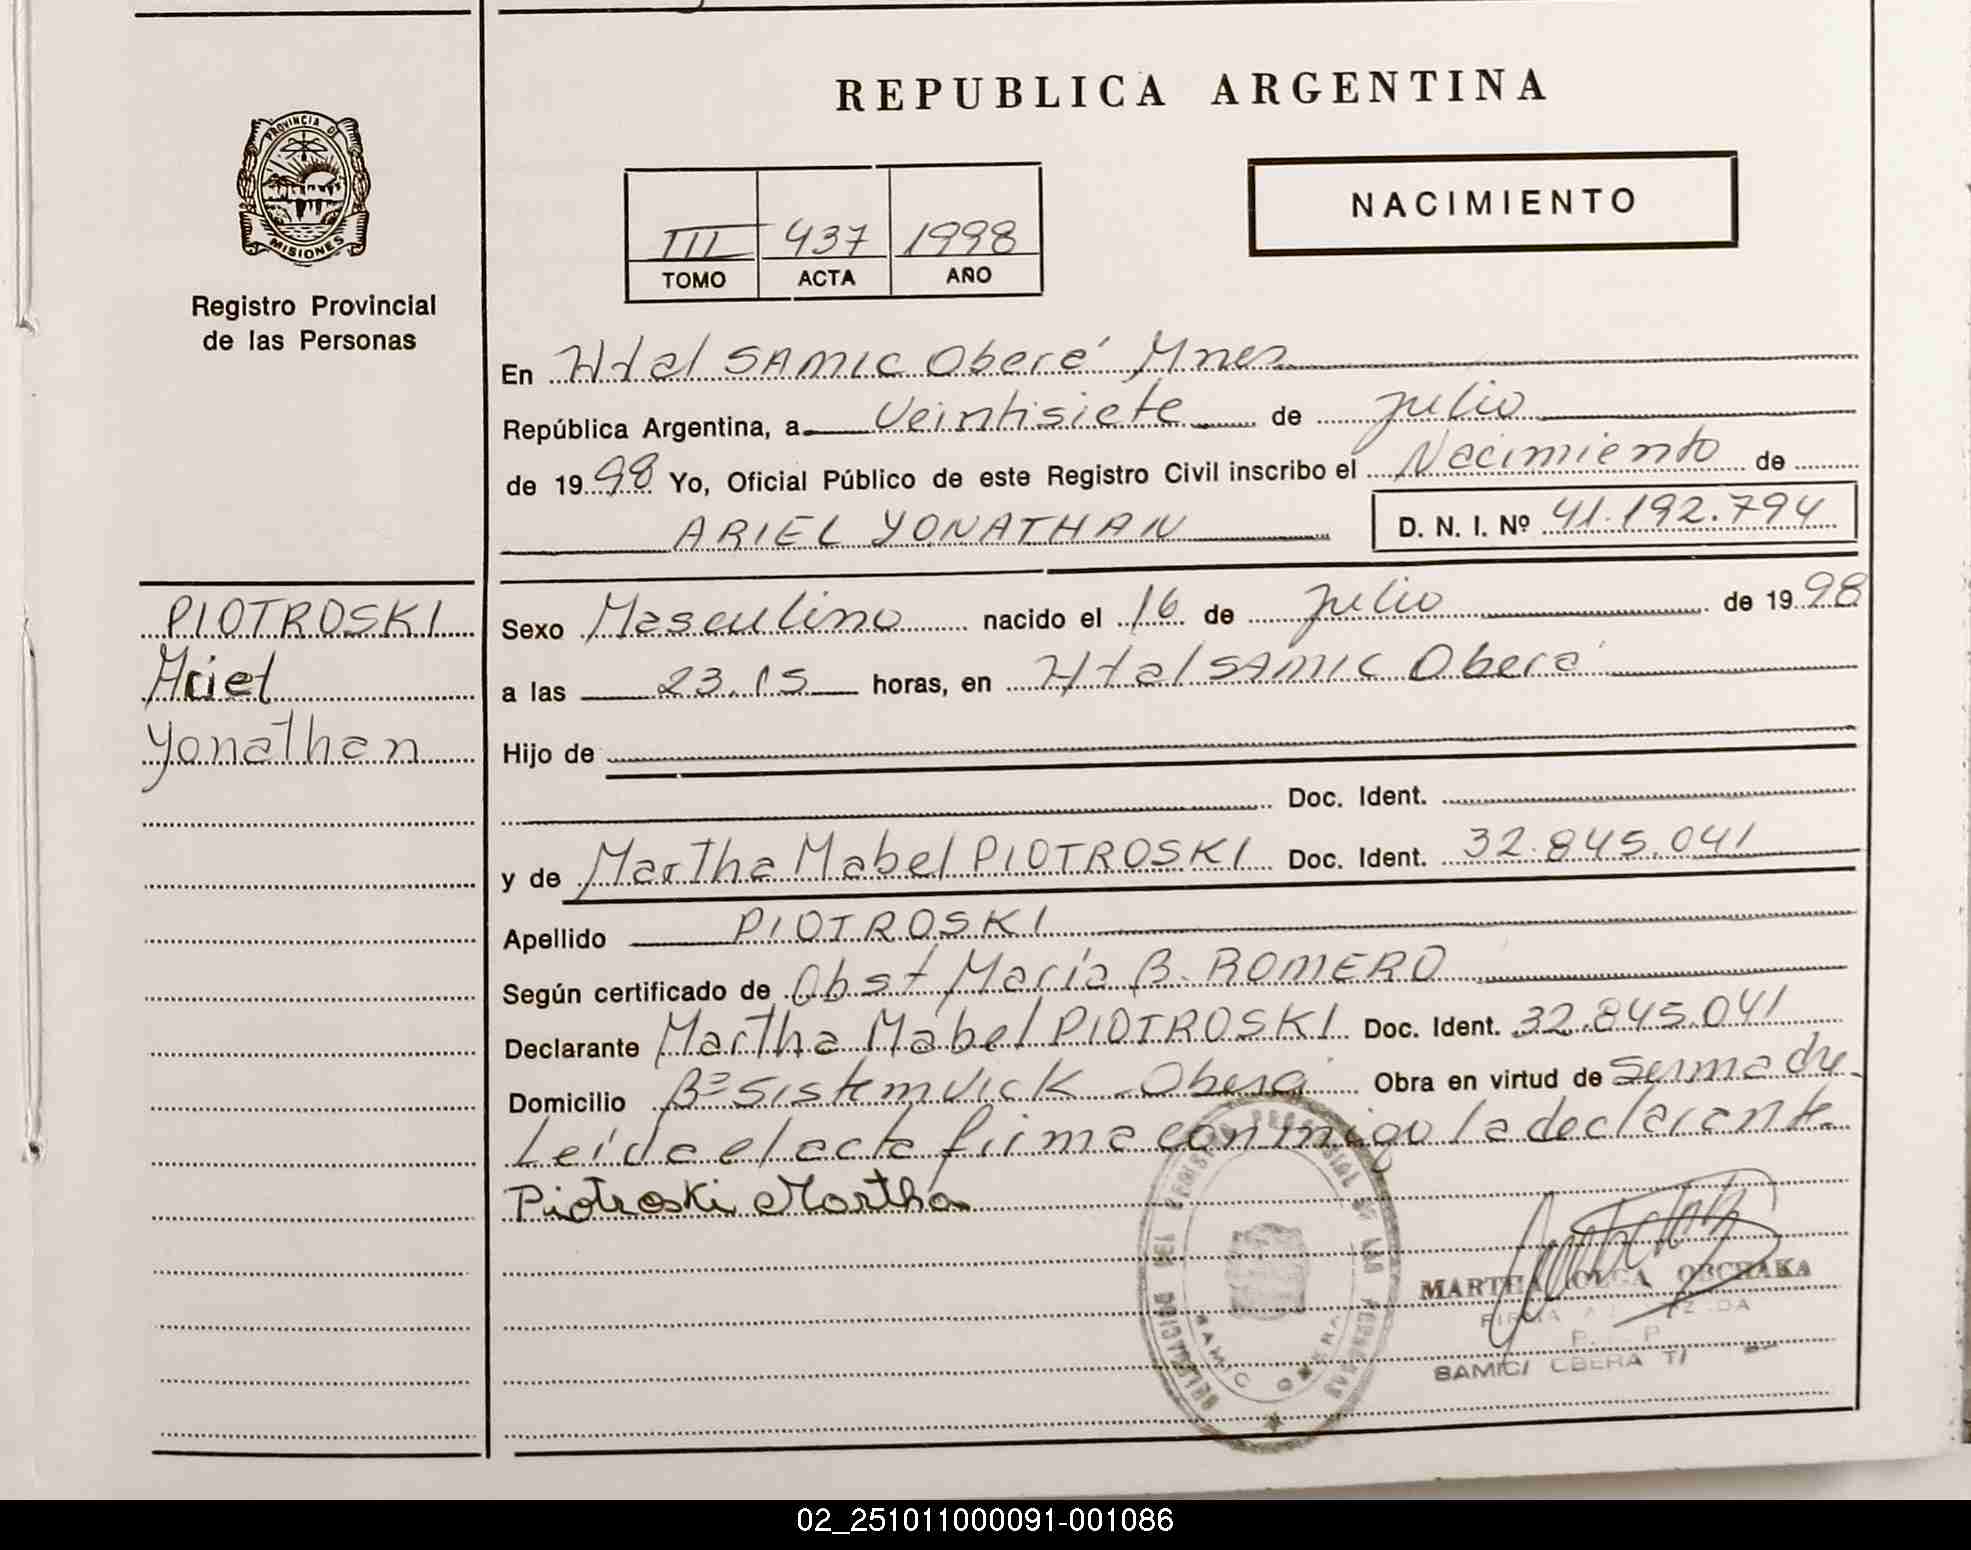 REPUBLICA ARGENTINA
PROVINCIA DE
MISIONES
Registro Provincial
de las Personas
NACIMIENTO
III 437 1998
TOMO ACTA AÑO
En Htal SAMIC Oberá Mnes
República Argentina, a Veintisiete de Julio
de 1998 Yo, Oficial Público de este Registro Civil inscribo el Nacimiento de
ARIEL YONATHAN D. N. I. Nº 41.192.794
PIOTROSKI
Ariel
Yonathan
Sexo Masculino nacido el 16 de Julio de 1998
a las 23.15 horas, en Htal SAMIC Oberá
Hijo de
Doc. Ident.
y de Martha Mabel PIOTROSKI Doc. Ident. 32.845.041
Apellido PIOTROSKI
Según certificado de Obst María B. ROMERO
Declarante Martha Mabel PIOTROSKI Doc. Ident. 32.845.041
Domicilio Bº Sistemvick Oberá Obra en virtud de ser madre.
Leída el acta firma conmigo la declarante.
Piotroski Martha
MARTHA OLGA OBCHAKA
SAMIC OBERA
02_251011000091-001086